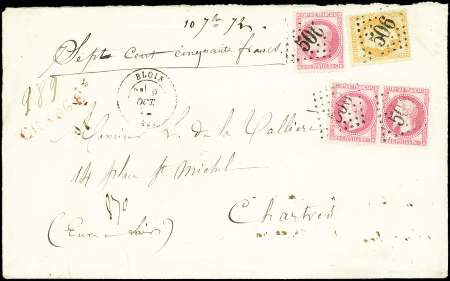 10 7bre 72
Sept Cent cinquante francs
BLOIS
9
OCT
189
CHARGÉ
Monsieur L. de la Vallière
14 place St Michel
870
Chartres
(Eure et Loir)
506
506
506